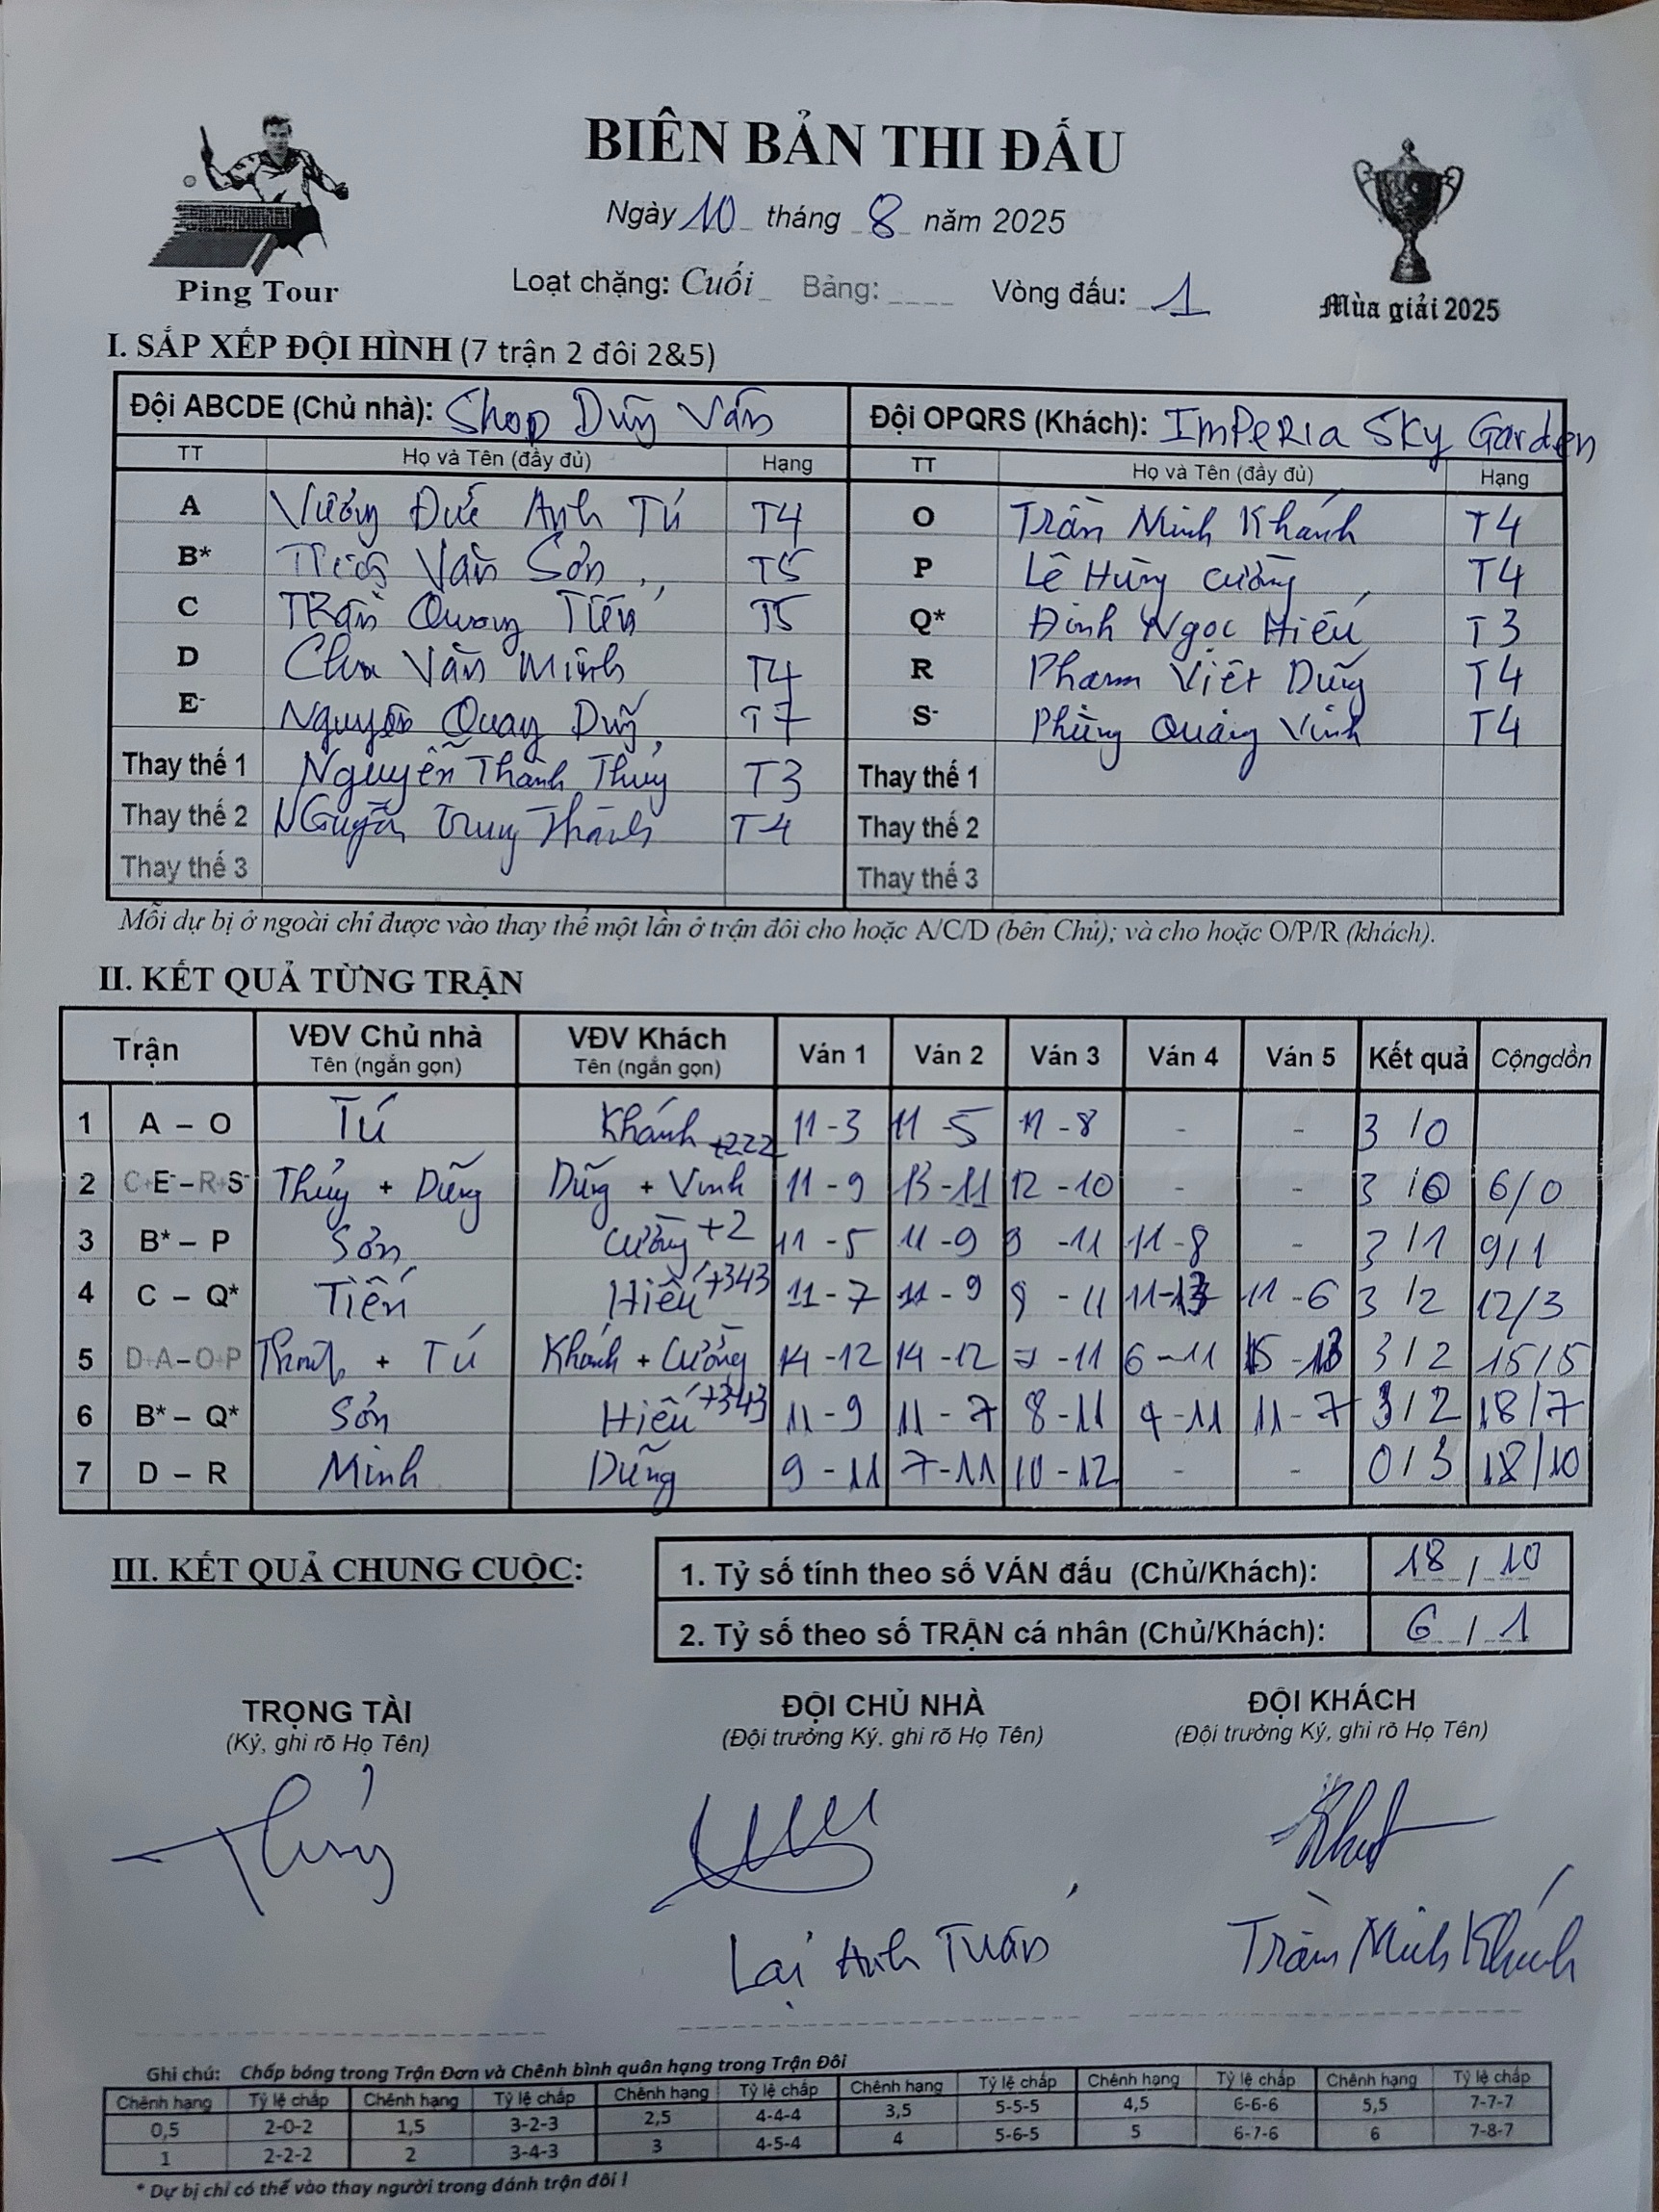 BIÊN BẢN THI ĐẤU
Ngày 10 tháng 8 năm 2025
Ping Tour
Loạt chặng: Cuối Bảng: Vòng đấu: 1
Mùa giải 2025
I. SẮP XẾP ĐỘI HÌNH (7 trận 2 đôi 2&5)
Đội ABCDE (Chủ nhà): Shop Dũng Vân Đội OPQRS (Khách): ImPeRIa Sky Garden
TT Họ và Tên (đầy đủ) Hạng TT Họ và Tên (đầy đủ) Hạng
A Vương Đức Anh Tú T4 O Trần Minh Khánh T4
B* Văn Sơn T5 P Lê Hùng Cường T4
C Trần Quang Tiến T5 Q* Đinh Ngọc Hiếu T3
D Chu Văn Minh T4 R Phạm Việt Dũng T4
E- Nguyễn Quang Dũng T7 S- Phùng Quang Vinh T4
Thay thế 1 Nguyễn Thanh Thủy T3 Thay thế 1
Thay thế 2 Nguyễn Trung Thành T4 Thay thế 2
Thay thế 3 Thay thế 3
Mỗi dự bị ở ngoài chỉ được vào thay thế một lần ở trận đôi cho hoặc A/C/D (bên Chủ); và cho hoặc O/P/R (khách).
II. KẾT QUẢ TỪNG TRẬN
Trận VĐV Chủ nhà Tên (ngắn gọn) VĐV Khách Tên (ngắn gọn) Ván 1 Ván 2 Ván 3 Ván 4 Ván 5 Kết quả Cộngdồn
1 A – O Tú Khánh 11 - 3 11 - 5 11 - 8 - - 3 / 0
2 C+E- – R+S- Thủy + Dũng Dũng + Vinh +222 11 - 9 13 - 11 12 - 10 - - 3 / 0 6/0
3 B* – P Sơn Cường +2 11 - 5 11 - 9 9 - 11 11 - 8 - 3 / 1 9/1
4 C – Q* Tiến Hiếu +343 11 - 7 11 - 9 9 - 11 11 - 13 11 - 6 3 / 2 12/3
5 D+A – O+P Thành + Tú Khánh + Cường 14 - 12 14 - 12 7 - 11 6 - 11 15 - 13 3 / 2 15/5
6 B* – Q* Sơn Hiếu +343 11 - 9 11 - 7 8 - 11 9 - 11 11 - 7 3 / 2 18/7
7 D – R Minh Dũng 9 - 11 7 - 11 10 - 12 - - 0 / 3 18/10
III. KẾT QUẢ CHUNG CUỘC:
1. Tỷ số tính theo số VÁN đấu (Chủ/Khách): 18 / 10
2. Tỷ số theo số TRẬN cá nhân (Chủ/Khách): 6 / 1
TRỌNG TÀI ĐỘI CHỦ NHÀ ĐỘI KHÁCH
(Ký, ghi rõ Họ Tên) (Đội trưởng Ký, ghi rõ Họ Tên) (Đội trưởng Ký, ghi rõ Họ Tên)
Lại Anh Tuấn Trần Minh Khánh
Ghi chú: Chấp bóng trong Trận Đơn và Chênh bình quân hạng trong Trận Đôi
Chênh hạng Tỷ lệ chấp Chênh hạng Tỷ lệ chấp Chênh hạng Tỷ lệ chấp Chênh hạng Tỷ lệ chấp Chênh hạng Tỷ lệ chấp Chênh hạng Tỷ lệ chấp
0,5 2-0-2 1,5 3-2-3 2,5 4-4-4 3,5 5-5-5 4,5 6-6-6 5,5 7-7-7
1 2-2-2 2 3-4-3 3 4-5-4 4 5-6-5 5 6-7-6 6 7-8-7
* Dự bị chỉ có thể vào thay người trong đánh trận đôi !